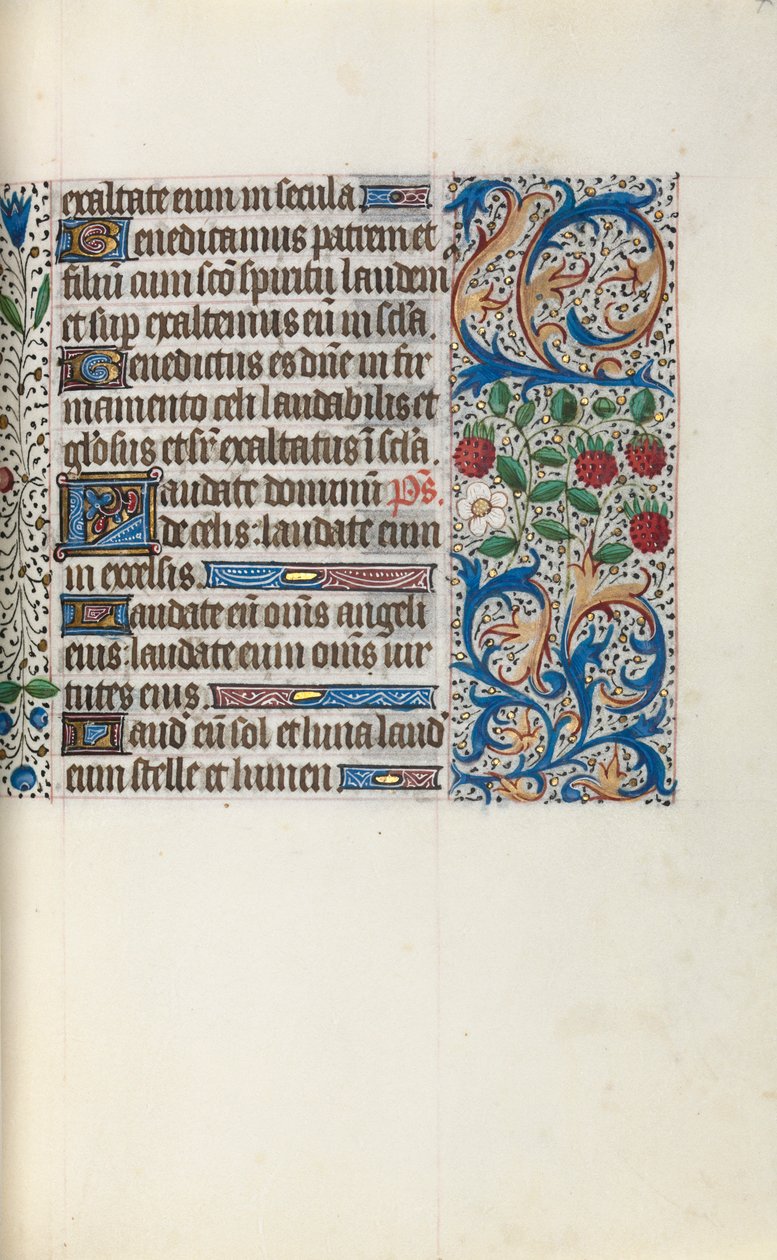 exaltate eum in secula
Benedicamus patrem et
filiū cum scō spiritu laudem
et sup exaltemus eū in scl'a.
Benedictus es dn̄e in fir
mamento celi laudabilis et
gl'osus et sr̄ exaltatus ī scl'a.
Laudate dominū ps̄.
de celis: laudate eum
in excelsis.
Laudate eū om̄s angeli
eius: laudate eum om̄s uir
tutes eius.
Laud' eū sol et luna laud'
eum stelle et lumen